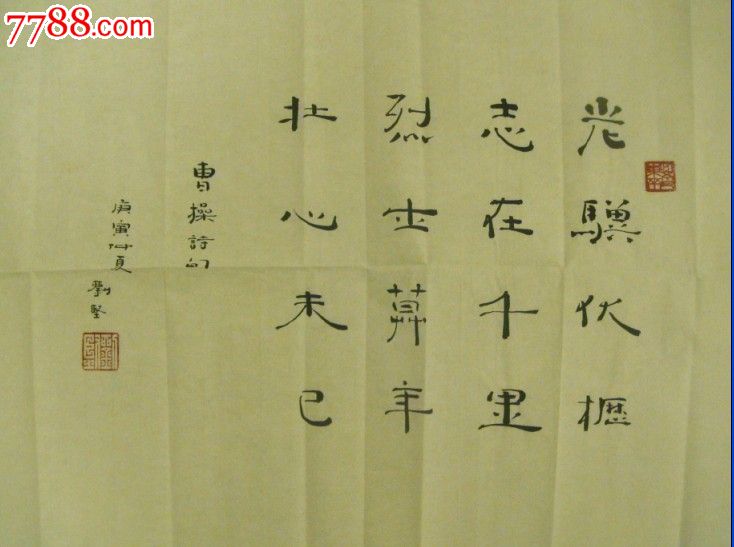 7788.com
老驥伏櫪
志在千里
烈士莫年
壯心未已
曹操詩句
庚寅仲夏
劉堅